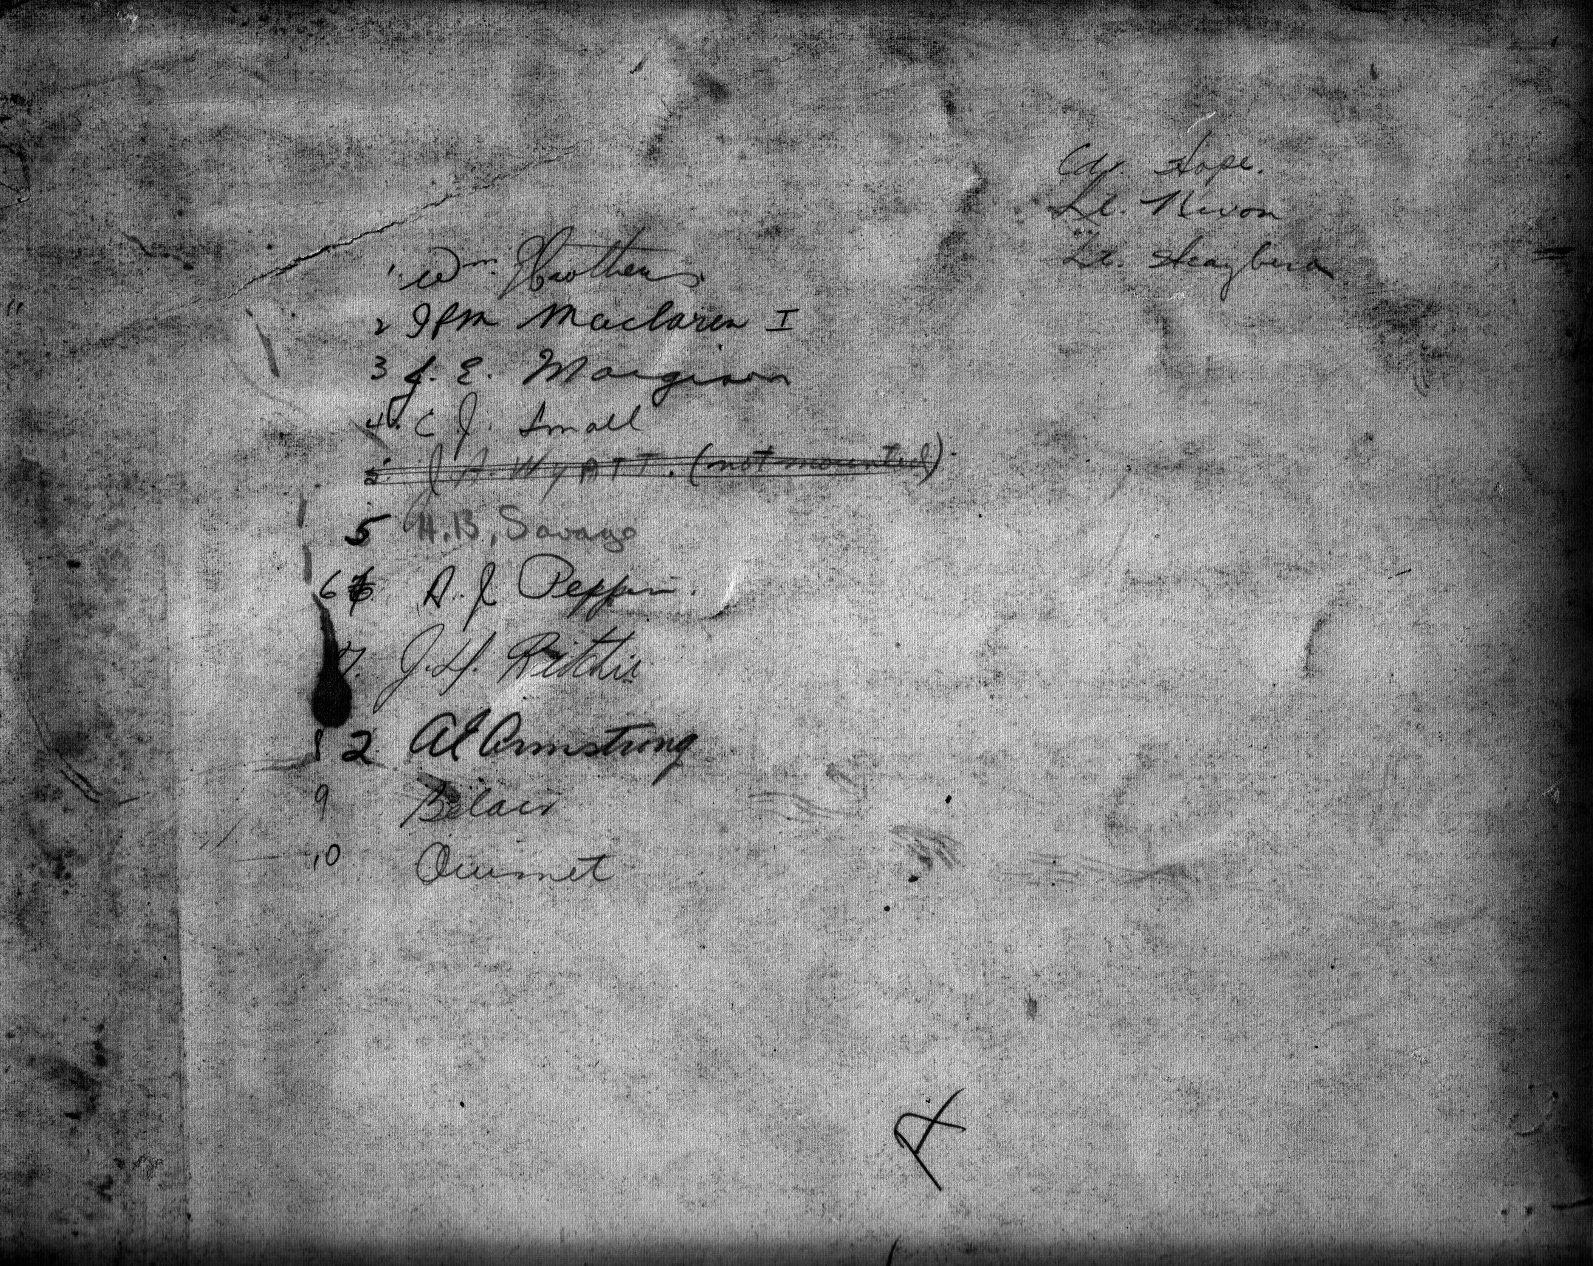 Cdr. Hope.
Lt. Nixon
Lt.
1. Wm.
2 JPM Maclaren I
3 J. E. Margison
4. C J. Small
5. J A WyATT. (not mounted)
5 H.B, Savage
6 A. J. Peppin.
7. J.H. Ritchie
8 2 AE Armstrong
9 Belair
10 Ouimet